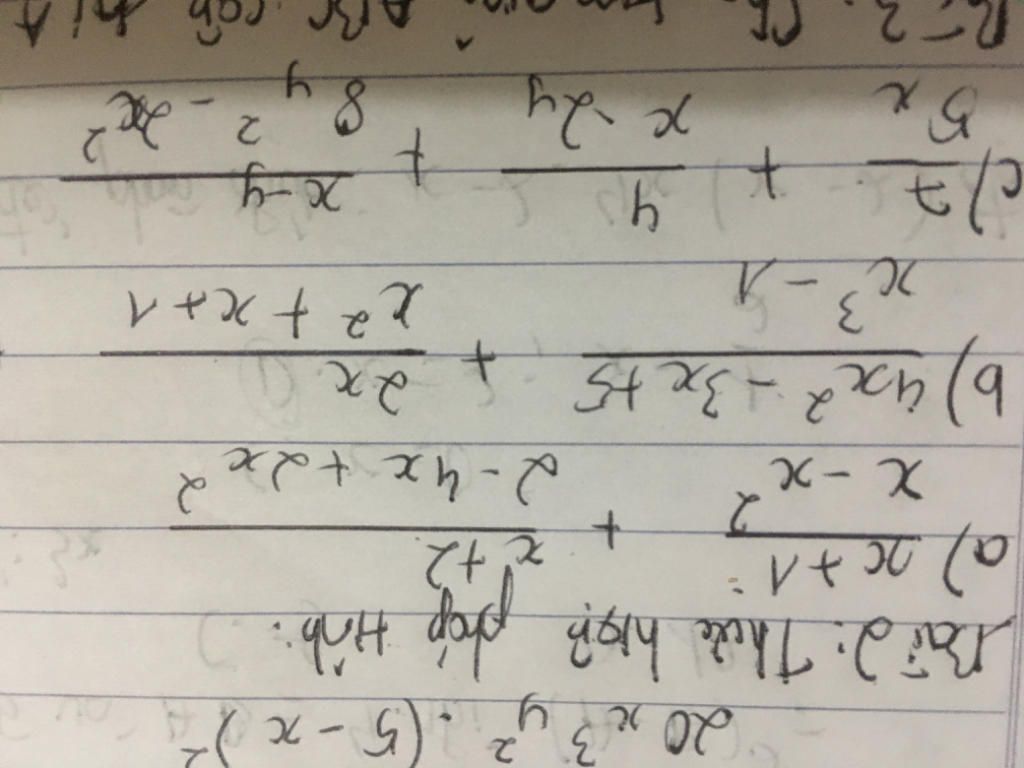 20x³y² . (5 - x)²
Bài 2: Thực hiện phép tính:
a) x+1 / x - x² + x+2 / 2 - 4x + 2x²
b) 4x² - 3x + 5 / x³ - 1 + 2x / x² + x + 1
c) 7 / 5x + 4 / x - 2y + x - y / 8y² - 2x²
ABC cân tại A